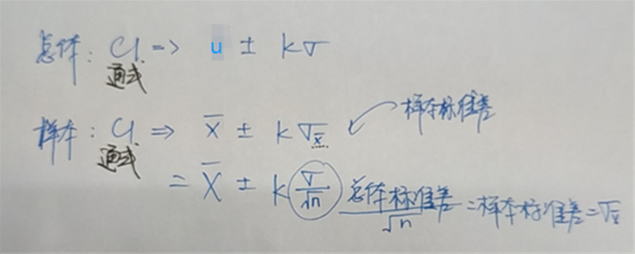 总体: CI => u ± kσ
通式
样本: CI => x̄ ± kσx̄ 样本标准差
通式
= x̄ ± k σ/√n 总体标准差/√n = 样本标准差 = σx̄